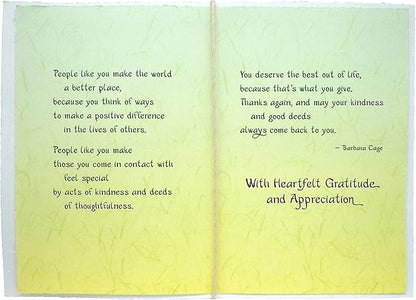 People like you make the world
a better place,
because you think of ways
to make a positive difference
in the lives of others.
People like you make
those you come in contact with
feel special
by acts of kindness and deeds
of thoughtfulness.
You deserve the best out of life,
because that's what you give.
Thanks again, and may your kindness
and good deeds
always come back to you.
– Barbara Cage
With Heartfelt Gratitude
and Appreciation